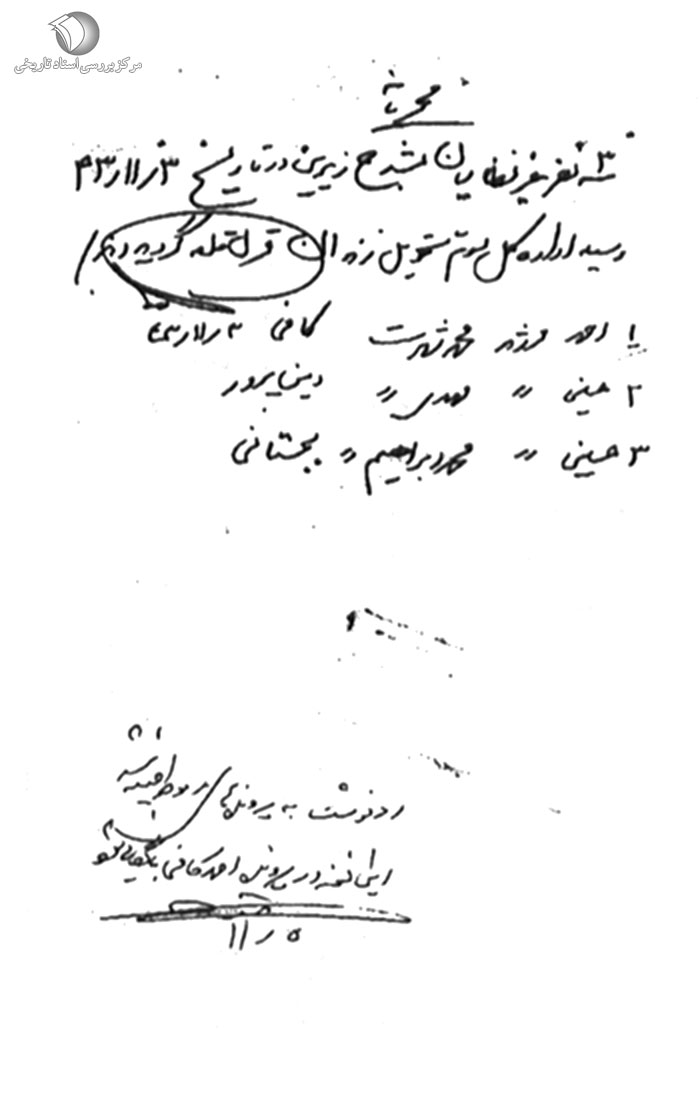 مرکز بررسی اسناد تاریخی
محرمانه
۳ نفر غیرنظامیان بشرح زیرین در تاریخ ۴۳/۱۱/۳
وسیله اداره کل سوم تحویل زندان قزل قلعه گردیدند
۱ احمد فرزند محمد شهرت کافی ۴۳/۱۱/۳
۲ حسینی " مهدی " دین پرور
۳ حسینی " محمدابراهیم " بجستانی
رونوشت به پرونده‌های مربوطه
این نسخه در پرونده احمد کافی بایگانی شود
۱۱/۵